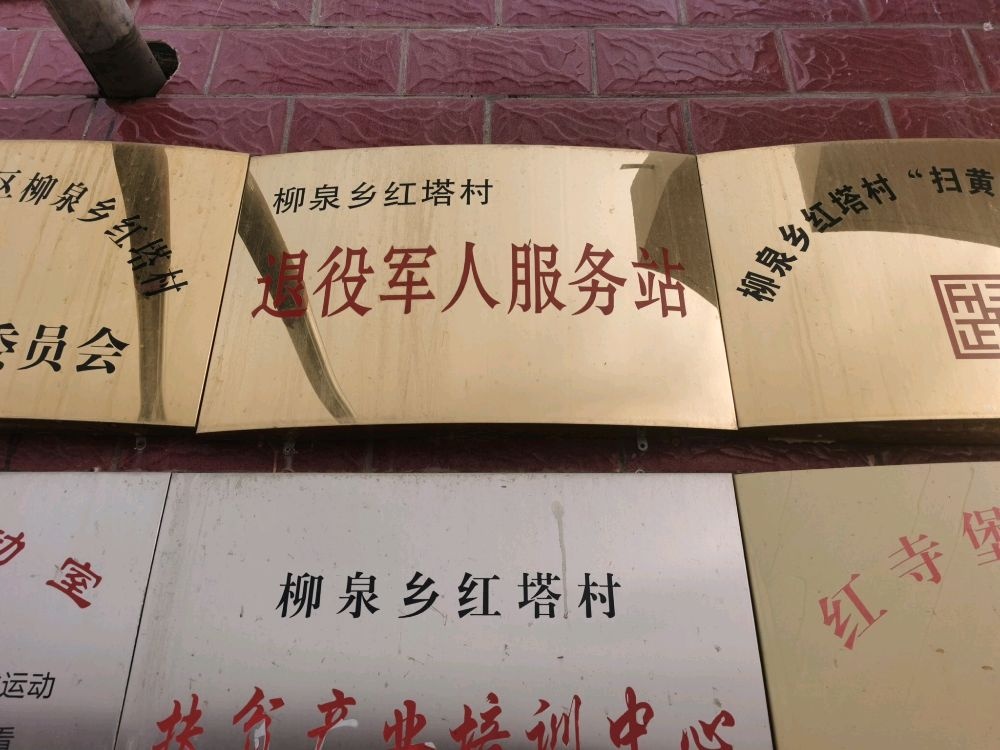 区柳泉乡红塔村
委员会
柳泉乡红塔村
退役军人服务站
柳泉乡红塔村“扫黄
动室
运动
看
柳泉乡红塔村
扶贫产业培训中心
红寺堡